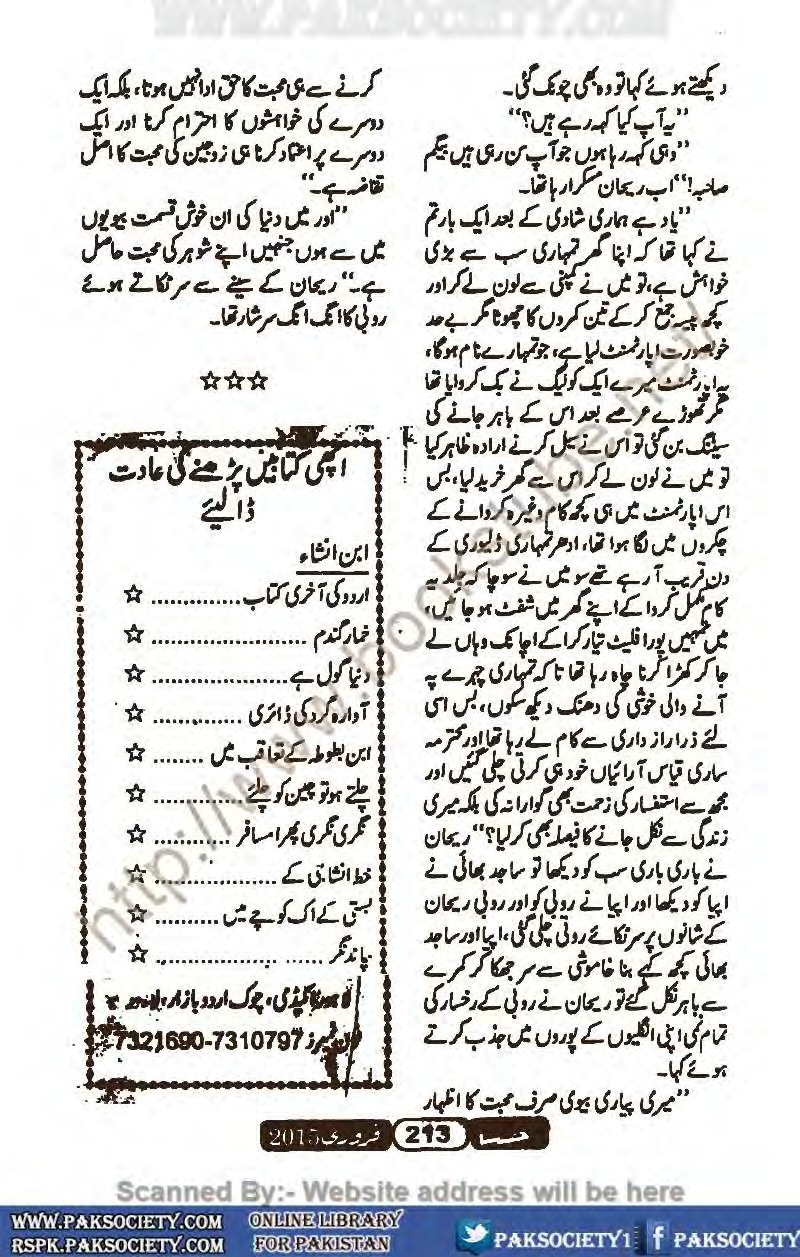 WWW.PAKSOCIETY.COM
دیکھتے ہوئے کہا تو وہ بھی چونک گئی۔
’’یہ آپ کیا کہہ رہے ہیں؟‘‘
’’وہی کہہ رہا ہوں جو آپ سن رہی ہیں بیگم
صاحبہ!‘‘ اب ریحان مسکرا رہا تھا۔
’’یاد ہے ہماری شادی کے بعد ایک بار تم
نے کہا تھا کہ اپنا گھر تمہاری سب سے بڑی
خواہش ہے، تو میں نے کمپنی سے لون لے کر اور
کچھ پیسے جمع کر کے تین کمروں کا چھوٹا مگر بے حد
خوبصورت اپارٹمنٹ لیا ہے، جو تمہارے نام ہوگا،
یہ اپارٹمنٹ میرے ایک کولیگ نے بک کروایا تھا
مگر تھوڑے عرصے بعد اس کے باہر جانے کی
سیٹنگ بن گئی تو اس نے سیل کرنے ارادہ ظاہر کیا
تو میں نے لون لے کر اس سے گھر خرید لیا، بس
اس اپارٹمنٹ میں ہی کچھ کام وغیرہ کروانے کے
چکروں میں لگا ہوا تھا، ادھر تمہاری ڈلیوری کے
دن قریب آ رہے تھے سو میں نے سوچا کہ جلد یہ
کام مکمل کروا کے اپنے گھر میں شفٹ ہو جائیں،
میں تمہیں پورا فلیٹ تیار کرا کے اچانک وہاں لے
جا کر کھڑا کرنا چاہ رہا تھا تاکہ تمہاری چہرے پہ
آنے والی خوشی کی دھنک دیکھ سکوں، بس اسی
لئے ذرا راز داری سے کام لے رہا تھا اور محترمہ
ساری قیاس آرائیاں خود ہی کرتی چلی گئیں اور
مجھ سے استفسار کی زحمت بھی گوارا نہ کی بلکہ میری
زندگی سے نکل جانے کا فیصلہ بھی کر لیا؟‘‘ ریحان
نے باری باری سب کو دیکھا تو ساجد بھائی نے
اپیا کو دیکھا اور اپیا نے روبی کو اور روبی ریحان
کے شانوں پر سر ٹکائے روتی چلی گئی، اپیا اور ساجد
بھائی کچھ کہے بنا خاموشی سے سر جھکا کر کمرے
سے باہر نکل گئے تو ریحان نے روبی کے رخسار کی
تمام نمی اپنی انگلیوں کے پوروں میں جذب کرتے
ہوئے کہا۔
’’میری پیاری بیوی صرف محبت کا اظہار
کرنے سے ہی محبت کا حق ادا نہیں ہوتا، بلکہ ایک
دوسرے کی خواہشوں کا احترام کرنا اور ایک
دوسرے پر اعتماد کرنا ہی زوجین کی محبت کا اصل
تقاضہ ہے۔‘‘
’’اور میں دنیا کی ان خوش قسمت بیویوں
میں سے ہوں جنہیں اپنے شوہر کی محبت حاصل
ہے۔‘‘ ریحان کے سینے سے سر ٹکاتے ہوئے
روبی کا انگ انگ سرشار تھا۔
☆☆☆
اچھی کتابیں پڑھنے کی عادت
ڈالیئے
ابن انشاء
اردو کی آخری کتاب .............. ☆
خمار گندم ........................ ☆
دنیا گول ہے ..................... ☆
آوارہ گرد کی ڈائری .............. ☆
ابن بطوطہ کے تعاقب میں ........ ☆
چلتے ہو تو چین کو چلئے .............. ☆
نگری نگری پھرا مسافر ............ ☆
خط انشا جی کے ................... ☆
بستی کے اک کوچے میں .......... ☆
چاند نگر ...................... ☆
لاہور اکیڈمی، چوک اردو بازار، لاہور
فون نمبرز 7310797-7321690
حنا 213 فروری 2015
http://www.bookstube.net/
Scanned By:- Website address will be here
WWW.PAKSOCIETY.COM
RSPK.PAKSOCIETY.COM
ONLINE LIBRARY
FOR PAKISTAN
PAKSOCIETY1
PAKSOCIETY